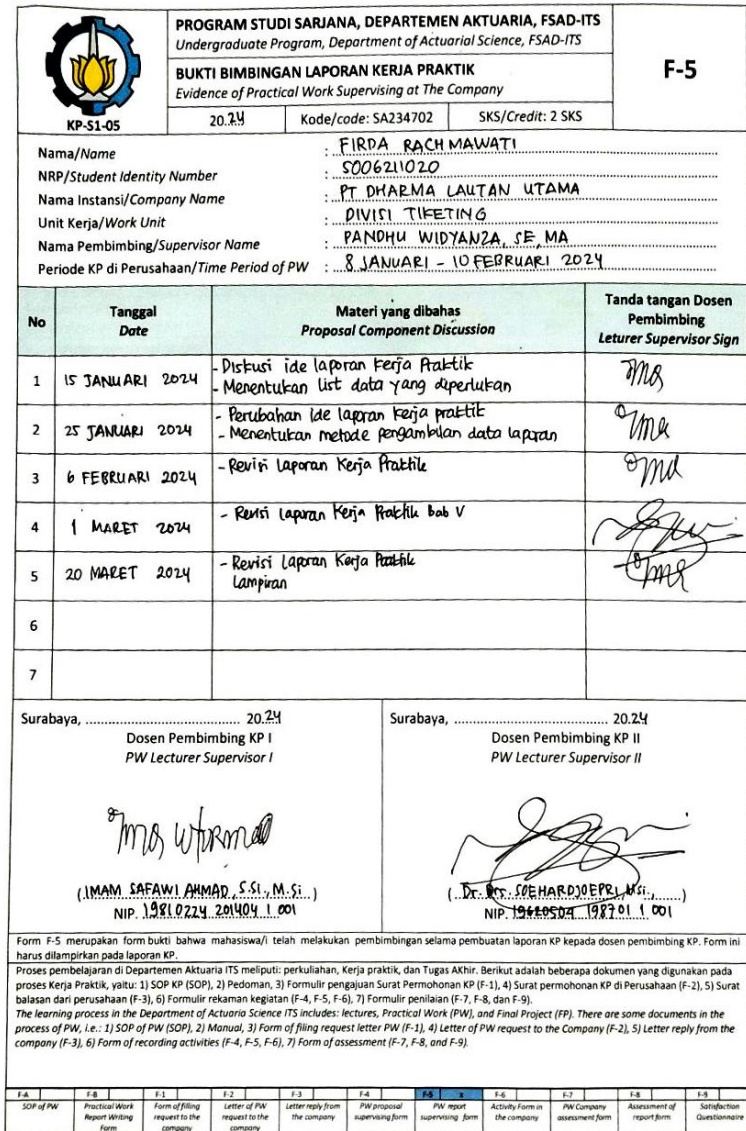 PROGRAM STUDI SARJANA, DEPARTEMEN AKTUARIA, FSAD-ITS
Undergraduate Program, Department of Actuarial Science, FSAD-ITS
BUKTI BIMBINGAN LAPORAN KERJA PRAKTIK
Evidence of Practical Work Supervising at The Company
F-5
KP-S1-05
20.24 Kode/code: SA234702 SKS/Credit: 2 SKS
Nama/Name : FIRDA RACHMAWATI
NRP/Student Identity Number : 5006211020
Nama Instansi/Company Name : PT DHARMA LAUTAN UTAMA
Unit Kerja/Work Unit : DIVISI TIKETING
Nama Pembimbing/Supervisor Name : PANDHU WIDYANZA, SE, MA
Periode KP di Perusahaan/Time Period of PW : 8 JANUARI - 10 FEBRUARI 2024
No Tanggal Date Materi yang dibahas Proposal Component Discussion Tanda tangan Dosen Pembimbing Leturer Supervisor Sign
1 15 JANUARI 2024 - Diskusi ide laporan kerja Praktik
- Menentukan list data yang diperlukan
2 25 JANUARI 2024 - Perubahan Ide laporan kerja praktik
- Menentukan metode pengambilan data laporan
3 6 FEBRUARI 2024 - Revisi Laporan Kerja Praktik
4 1 MARET 2024 - Revisi Laporan Kerja Praktik Bab V
5 20 MARET 2024 - Revisi Laporan Kerja Praktik
Lampiran
6
7
Surabaya, ........................................ 20.24
Dosen Pembimbing KP I
PW Lecturer Supervisor I
(IMAM SAFAWI AHMAD, S.Si., M.Si)
NIP. 19810224 201404 1 001
Surabaya, ........................................ 20.24
Dosen Pembimbing KP II
PW Lecturer Supervisor II
(Dr. Drs. SOEHARDJOEPRI, MSi.,)
NIP. 19620504 198701 1 001
Form F-5 merupakan form bukti bahwa mahasiswa/i telah melakukan pembimbingan selama pembuatan laporan KP kepada dosen pembimbing KP. Form ini
harus dilampirkan pada laporan KP.
Proses pembelajaran di Departemen Aktuaria ITS meliputi: perkuliahan, Kerja praktik, dan Tugas AKhir. Berikut adalah beberapa dokumen yang digunakan pada
proses Kerja Praktik, yaitu: 1) SOP KP (SOP), 2) Pedoman, 3) Formulir pengajuan Surat Permohonan KP (F-1), 4) Surat permohonan KP di Perusahaan (F-2), 5) Surat
balasan dari perusahaan (F-3), 6) Formulir rekaman kegiatan (F-4, F-5, F-6), 7) Formulir penilaian (F-7, F-8, dan F-9).
The learning process in the Department of Actuaria Science ITS includes: lectures, Practical Work (PW), and Final Project (FP). There are some documents in the
process of PW, i.e.: 1) SOP of PW (SOP), 2) Manual, 3) Form of filing request letter PW (F-1), 4) Letter of PW request to the Company (F-2), 5) Letter reply from the
company (F-3), 6) Form of recording activities (F-4, F-5, F-6), 7) Form of assessment (F-7, F-8, and F-9).
F-A F-B F-1 F-2 F-3 F-4 F-5 x F-6 F-7 F-8 F-9
SOP of PW
Practical Work Report Writing Form
Form of filling request to the company
Letter of PW request to the company
Letter reply from the company
PW proposal supervising form
PW report supervising form
Activity Form in the company
PW Company assessment form
Assessment of report form
Satisfaction Questionnaire